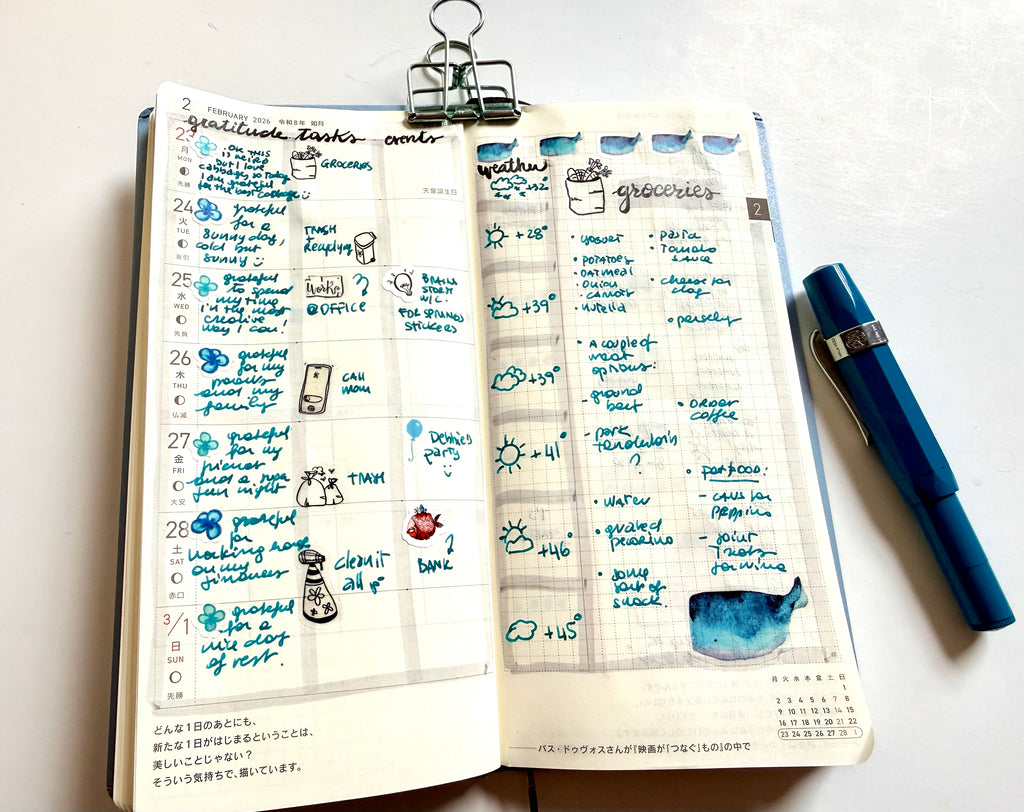 2 FEBRUARY 2026 令和8年 如月
gratitude tasks events
23
月
MON
先勝
OK THIS
is weird
but I love
cabbage, so today
I am grateful
for the best cabbage
GROCERIES
天皇誕生日
24
火
TUE
友引
grateful
for a
sunny day,
cold but
sunny
TRASH
+
Recycling
25
水
WED
先負
grateful
to spend
my time
in the most
creative
way I can!
Works
?
@OFFICE
BRAIN
STORM
w/C.
FOR SPRING
stickers
26
木
THU
仏滅
grateful
for my
parents
and my
family
CALL
MOM
27
金
FRI
大安
grateful
for my
friends
and a
fun night
TRASH
Debbie's
party
28
土
SAT
赤口
grateful
for
working
on my
finances
clean it
all up
?
BANK
3/1
日
SUN
先勝
grateful
for a
nice day
of rest.
どんな1日のあとにも、
新たな1日がはじまるということは、
美しいことじゃない？
そういう気持ちで、描いています。
weather
+32°
+28°
+39°
+39°
+41°
+46°
+45°
groceries
2
• yogurt
• potatoes
• oatmeal
• onion
• carrots
• nutella
• A couple of
meat
options:
- ground
beef
- pork
tenderloin
?
• water
• grated
pecorino
• some
sort of
snack.
• pasta
• tomato
sauce
• cheese for
dog
• parsely
• ORDER
coffee
- joint
treats
for nina
月 火 水 木 金 土 日
1
2 3 4 5 6 7 8
9 10 11 12 13 14 15
16 17 18 19 20 21 22
23 24 25 26 27 28 1
――バス・ドゥヴォスさんが『映画が「つなぐ」もの』の中で